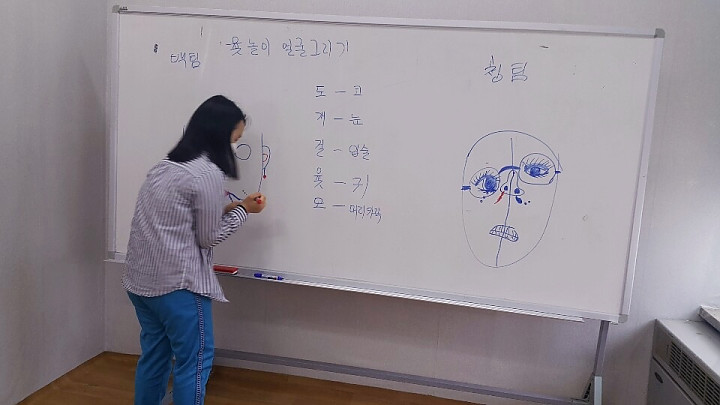 윷놀이 얼굴그리기
백팀
청팀
도 - 코
개 - 눈
걸 - 입술
윷 - 귀
모 - 머리카락